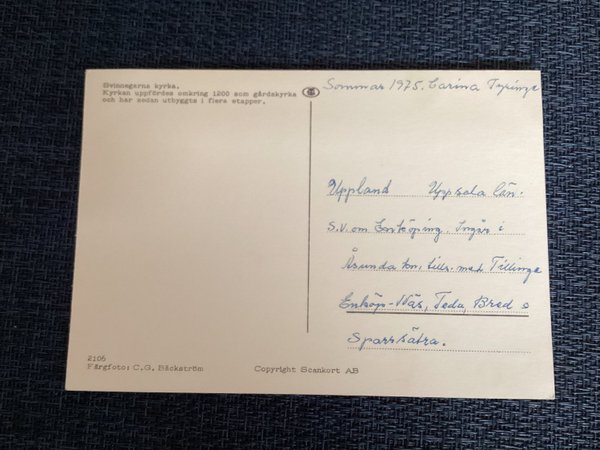 Svinnegarns kyrka.
Kyrkan uppfördes omkring 1200 som gårdskyrka
och har sedan utbyggts i flera etapper.
Sommar 1975. Carina Tepinge
Uppland Uppsala län.
S.V. om Enköping. Ingår i
Åsunda kn, tills. med Tillinge
Enköp-Näs, Teda, Bred o
Sparrsätra.
2105
Färgfoto: C.G. Bäckström
Copyright Scankort AB